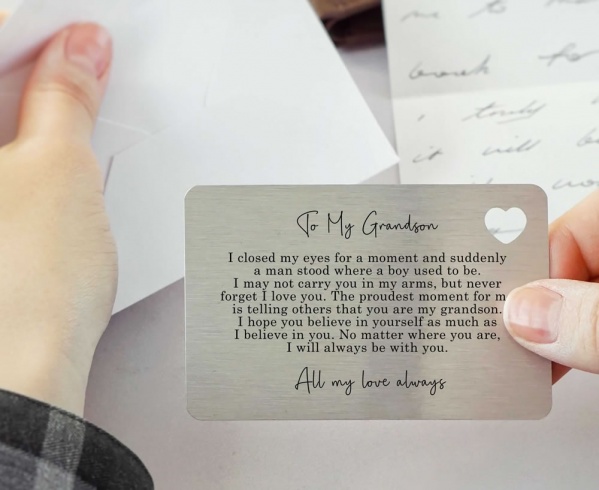 To My Grandson
I closed my eyes for a moment and suddenly
a man stood where a boy used to be.
I may not carry you in my arms, but never
forget I love you. The proudest moment for m
is telling others that you are my grandson.
I hope you believe in yourself as much as
I believe in you. No matter where you are,
I will always be with you.
All my love always
me to
for
truly
it will b